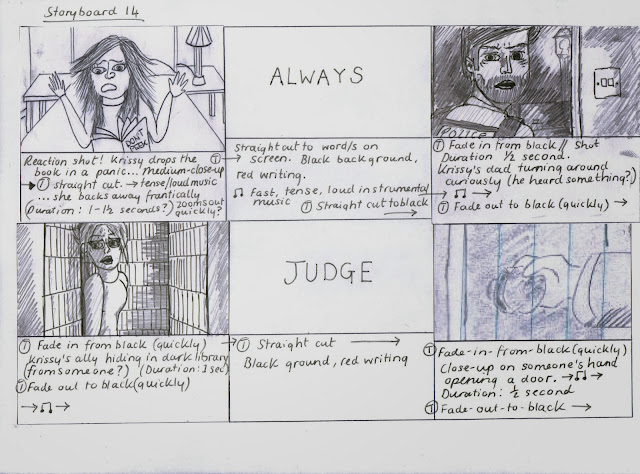 Storyboard 14
DON'T
PEEK
Reaction shot! Krissy drops the
book in a panic... medium-close-up
→ Ⓣ straight cut. → tense/loud music
... she backs away frantically
(Duration: 1-1½ seconds?) zooms out
quickly?
ALWAYS
Ⓣ Straight cut to word/s on
→ screen. Black background,
red writing.
♫ Fast, tense, loud instrumental
music Ⓣ Straight cut to black
→
POLICE
Ⓣ Fade in from black // Shot
Duration ½ second.
Krissy's dad turning around
curiously (he heard something?)
→ ♫ →
Ⓣ Fade out to black (quickly) →
Ⓣ Fade in from black (quickly) →
Krissy's ally hiding in dark library
(from someone?) (Duration: 1 sec)
Ⓣ Fade out to black (quickly)
→ ♫ →
JUDGE
Ⓣ Straight cut →
Black ground, red writing
Ⓣ Fade-in-from-black (quickly)
Close-up on someone's hand
opening a door. → ♫ →
Duration: ½ second
Ⓣ Fade-out-to-black →